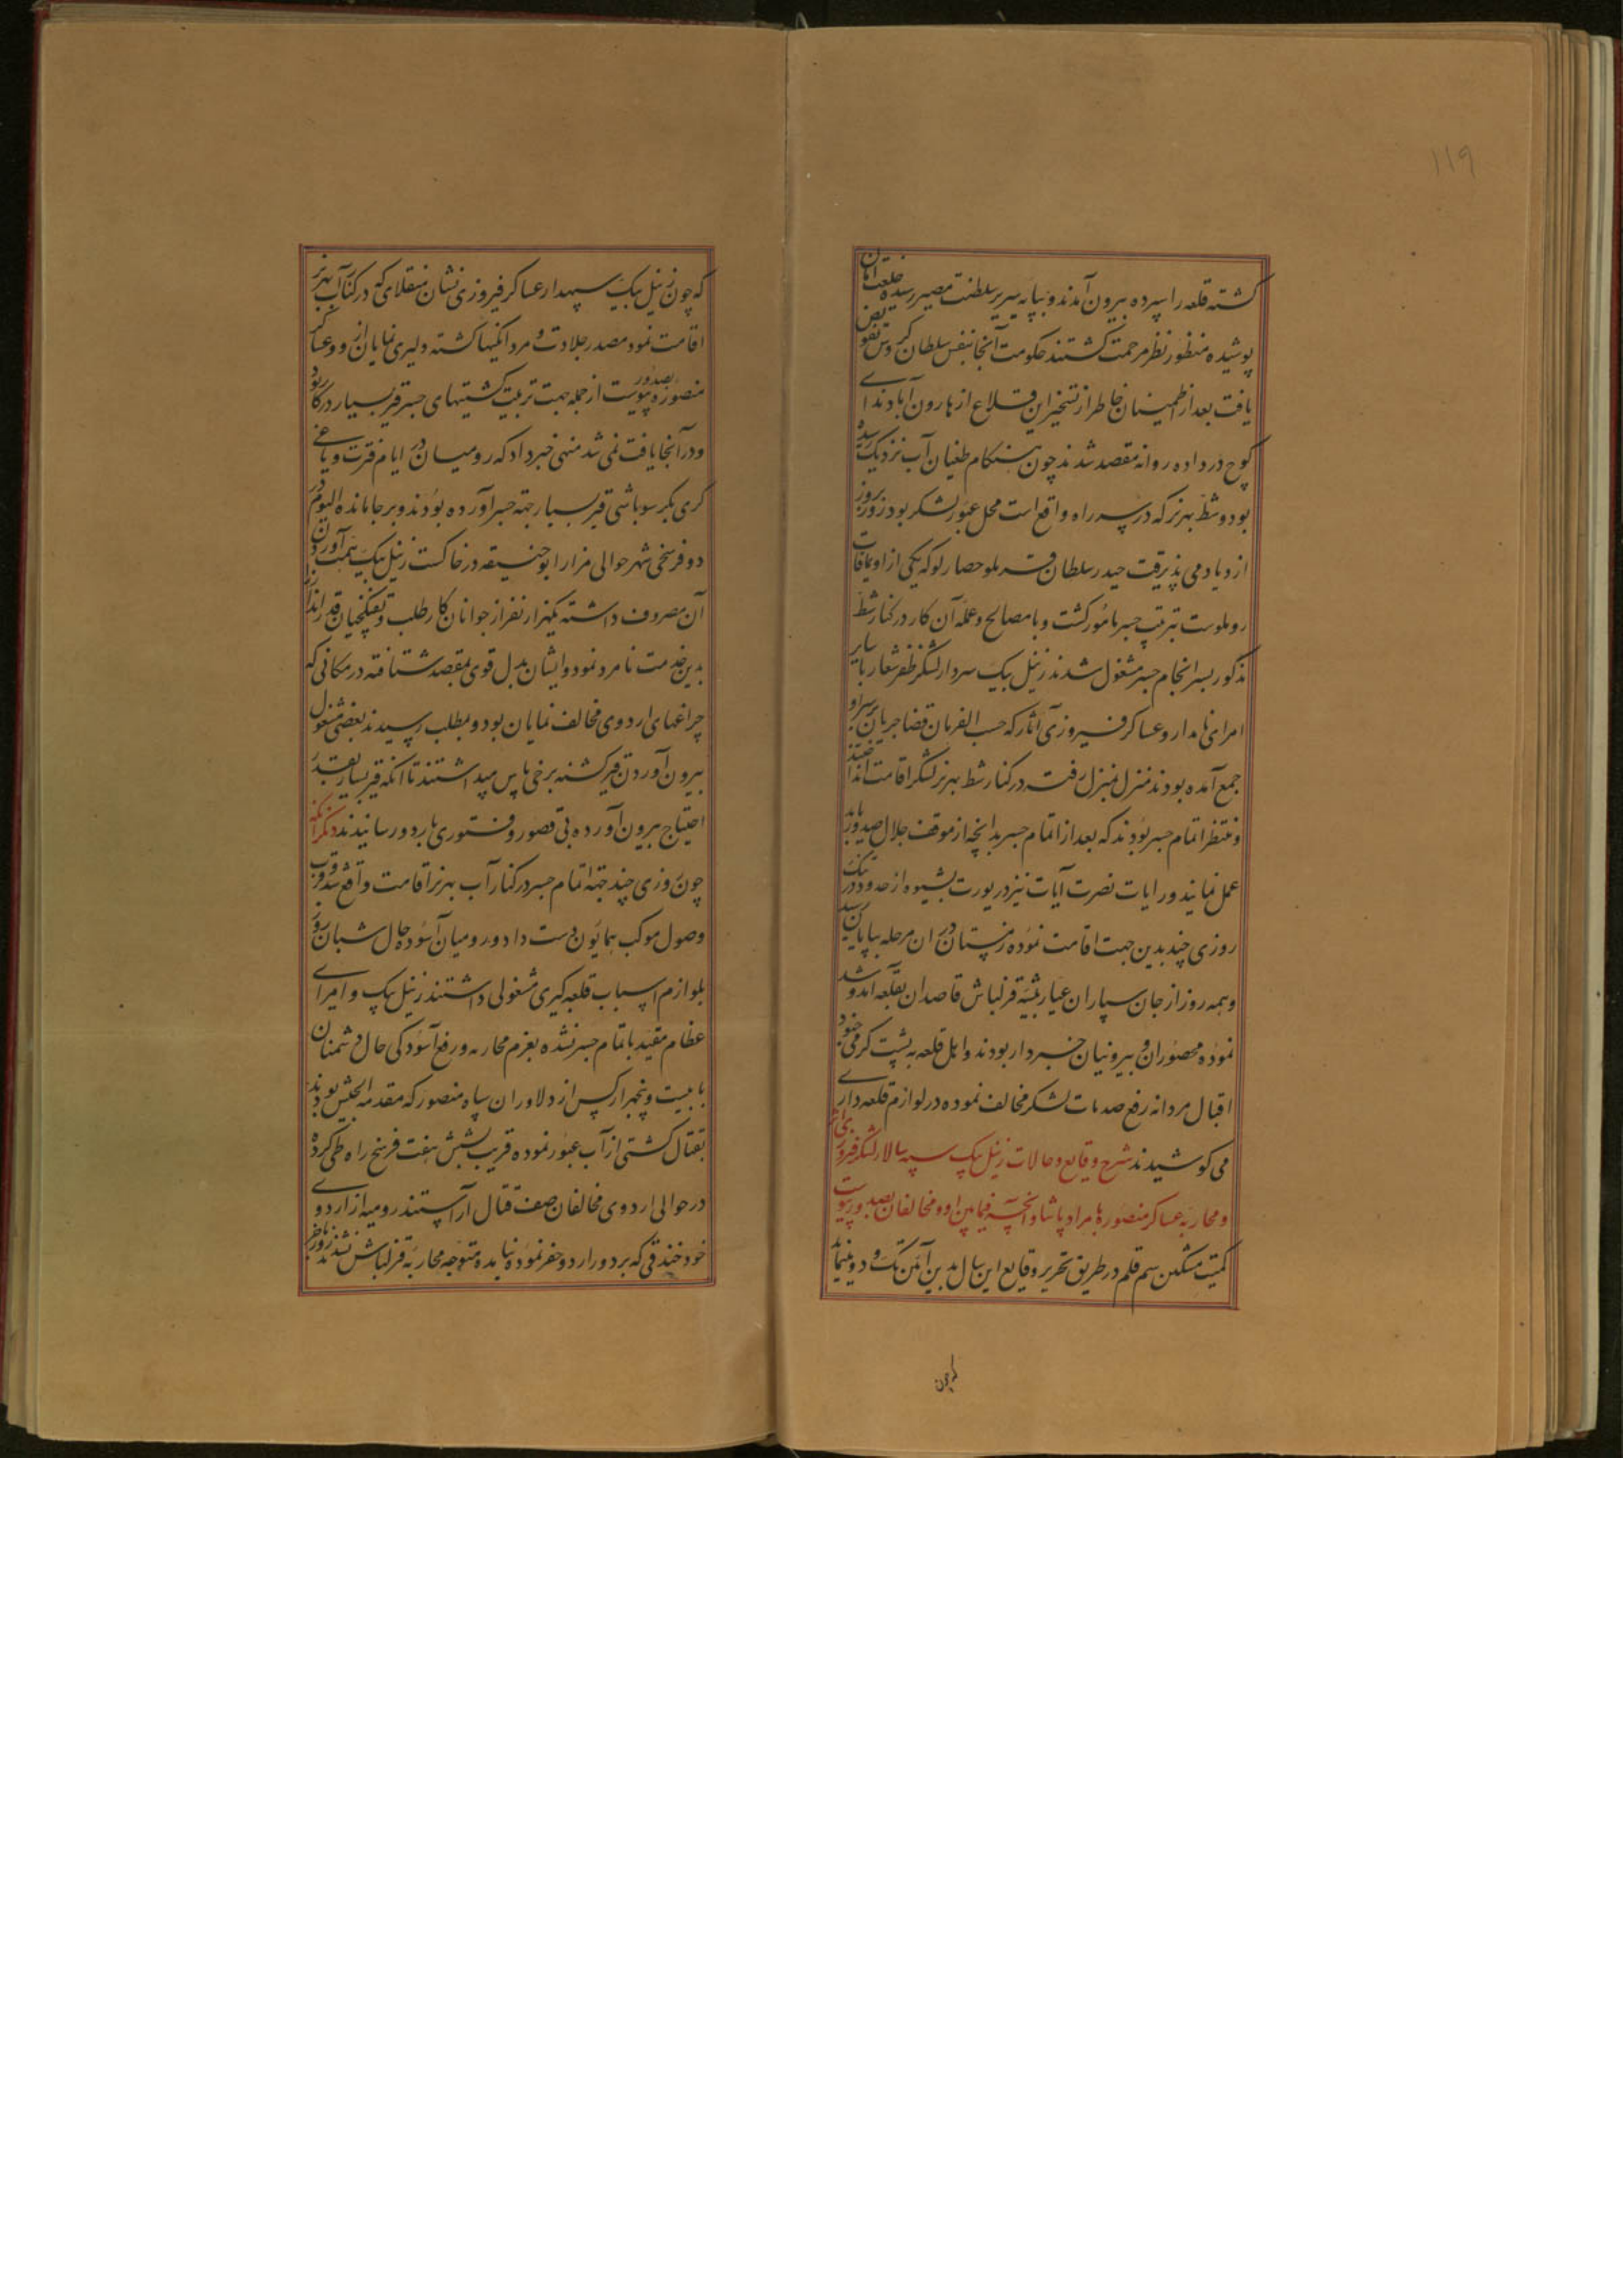 ۱۱۹
کشته قلعه را سپرده بیرون آمدند و بپایه سریر سلطنت مصیر رسیده خلعت امان
پوشیده منظور نظر مرحمت کشتند حکومت آنجا بنفس سلطان کروس تفویض
یافت بعد از اطمینان خاطر از تسخیر این قلاع از هارون آباد ندای
کوچ در داده روانه مقصد شدند چون هنکام طغیان آب نزدیک رسیده
بود و شط بهرز که در سر راه واقع است محل عبور لشکر بود روز بروز
ازدیاد می پذیرفت حیدر سلطان قره بلو حصارلو که یکی از اویماقات
روملوست بترتیب جسر مامور کشت و با مصالح و عمله آن کار در کنار شط
مذکور بسر انجام جسر مشغول شدند زنیل بیک سردار لشکر ظفر شعار با سایر
امرای نامدار و عساکر فیروزی آثار که حسب الفرمان قضا جریان بر سر او
جمع آمده بودند منزل بمنزل رفته در کنار شط بهرز لنکر اقامت انداختند
و منتظر اتمام جسر بودند که بعد از اتمام جسر بدانچه از موقف جلال صدور یابد
عمل نمایند و رایات نصرت آیات نیز در یورت بشیوه از حدود درتنک
روزی چند بدین جهت اقامت نموده زمستان در ان مرحله بپایان رسید
و همه روز از جان سپاران عیار پیشه قزلباش قاصدان بقلعه آمد و شد
نموده محصوران و بیرونیان خبردار بودند و اهل قلعه به پشت کرمی خود
اقبال مردانه رفع صدمات لشکر مخالف نموده در لوازم قلعه داری
می کوشیدند شرح وقایع و حالات زنیل بیک سپه سالار لشکر فیروزی اثر
و محاربه عساکر منصوره با مراد پاشا و آنچه فیمابین او و مخالفان بصدور پیوست
کمیت مشکین سم قلم در طریق تحریر وقایع این سال بدین آئین تک و دو مینماید
که چون
که چون زنیل بیک سپهدار عساکر فیروزی نشان منقلای که در کنار آب بهرز
اقامت نمود مصدر جلادت و مردانکیها کشته دلیری نمایان از و و عساکر
منصوره بصدور پیوست از جمله جهت تربیت کشتیهای جسر قیر بسیار در کار بود
و در آنجا یافت نمی شد منهی خبر داد که رومیان در ایام فترت و یاغی
کری بکر سوباشی قیر بسیار جهة جسر آورده بودند و بر جا مانده الیوم در
دو فرسخی شهر حوالی مزار ابو حنیفه در خاکست زنیل بیک همت بآوردن
آن مصروف داشته یکهزار نفر از جوانان کار طلب و تفنکچیان قدر انداز را
بدین خدمت نامرد نمود و ایشان بدل قوی بمقصد شتافته در مکانی که
چراغهای اردوی مخالف نمایان بود و بمطلب رسیدند بعضی مشغول
بیرون آوردن قیر کشته برخی پاس میداشتند تا آنکه قیر بسیار بقدر
احتیاج بیرون آورده بی قصور و فتوری باردو رسانیدند دیکر آنکه
چون روزی چند جهة اتمام جسر در کنار آب بهرز اقامت واقع شد و قرب
وصول موکب همایون دست داد و رومیان آسوده حال شبان روز
بلوازم اسباب قلعه کیری مشغولی داشتند زنیل بیک و امرای
عظام مقید باتمام جسر نشده بعزم محاربه و رفع آسودکی حال دشمنان
با بیست و پنجهزار کس از دلاوران سپاه منصور که مقدمه الجیش بودند
بقتال کشتی از آب عبور نموده قریب بشش هفت فرسخ راه طی کرده
در حوالی اردوی مخالفان صف قتال آراستند رومیه از اردوی
خود خندقی که بر دور اردو حفر نموده متوجه محاربه قزلباش نشدند